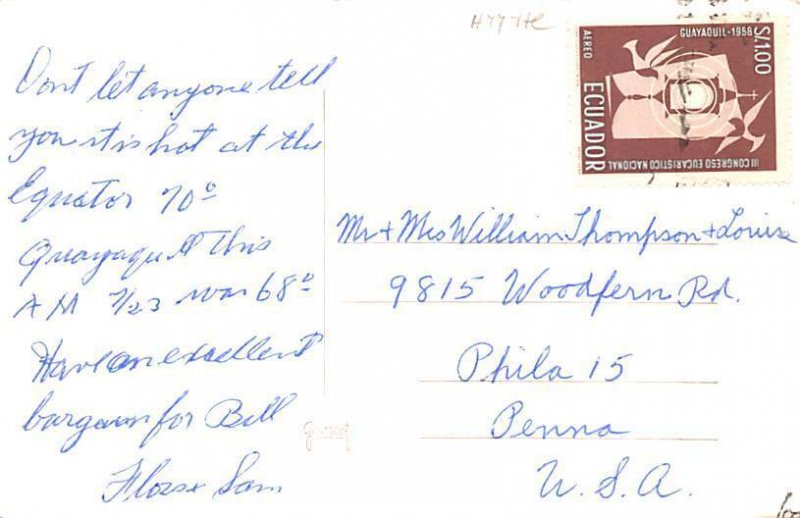 Dont let anyone tell
you it is hot at the
Equator 70°
Guayaquil this
AM 7/23 was 68°
Have an excellent
bargain for Bill
Floss + Sam
AEREO
ECUADOR
GUAYAQUIL-1958
III CONGRESO EUCARISTICO NACIONAL
S/.1.00
Mr + Mrs William Thompson + Louise
9815 Woodfern Rd.
Phila 15
Penna
U.S.A.